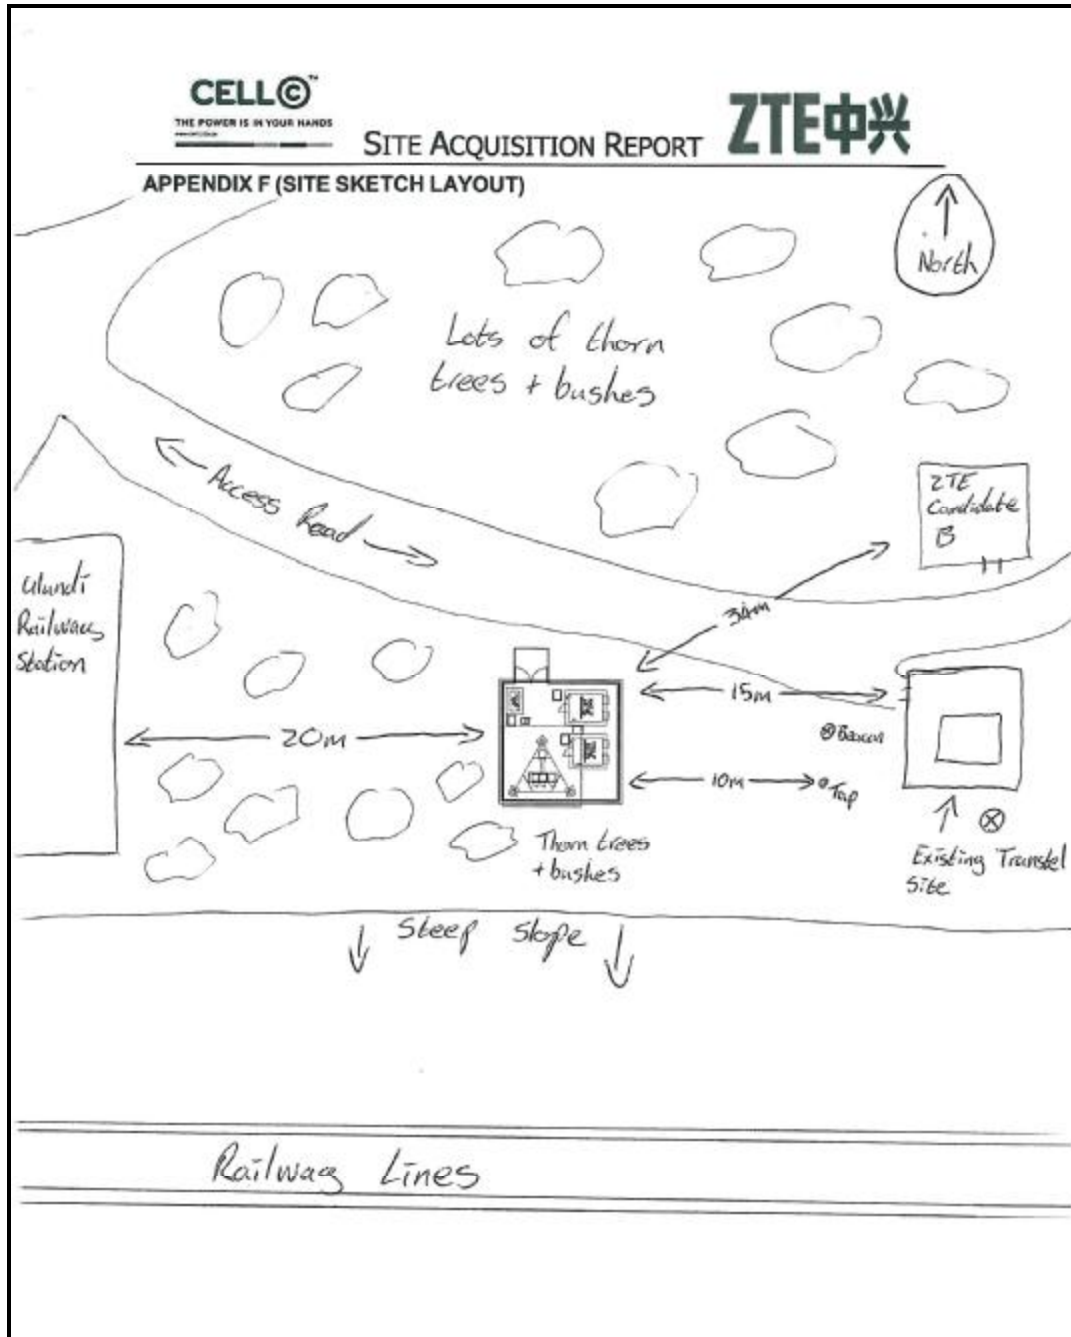 CELL©™
THE POWER IS IN YOUR HANDS
SITE ACQUISITION REPORT
ZTE中兴
APPENDIX F (SITE SKETCH LAYOUT)
North
Lots of thorn
trees + bushes
Access Road
ZTE
Candidate
B
34m
Ulundi
Railway
Station
15m
20m
Beacon
10m
Tap
Thorn trees
+ bushes
Existing Transtel
Site
Steep slope
Railway Lines